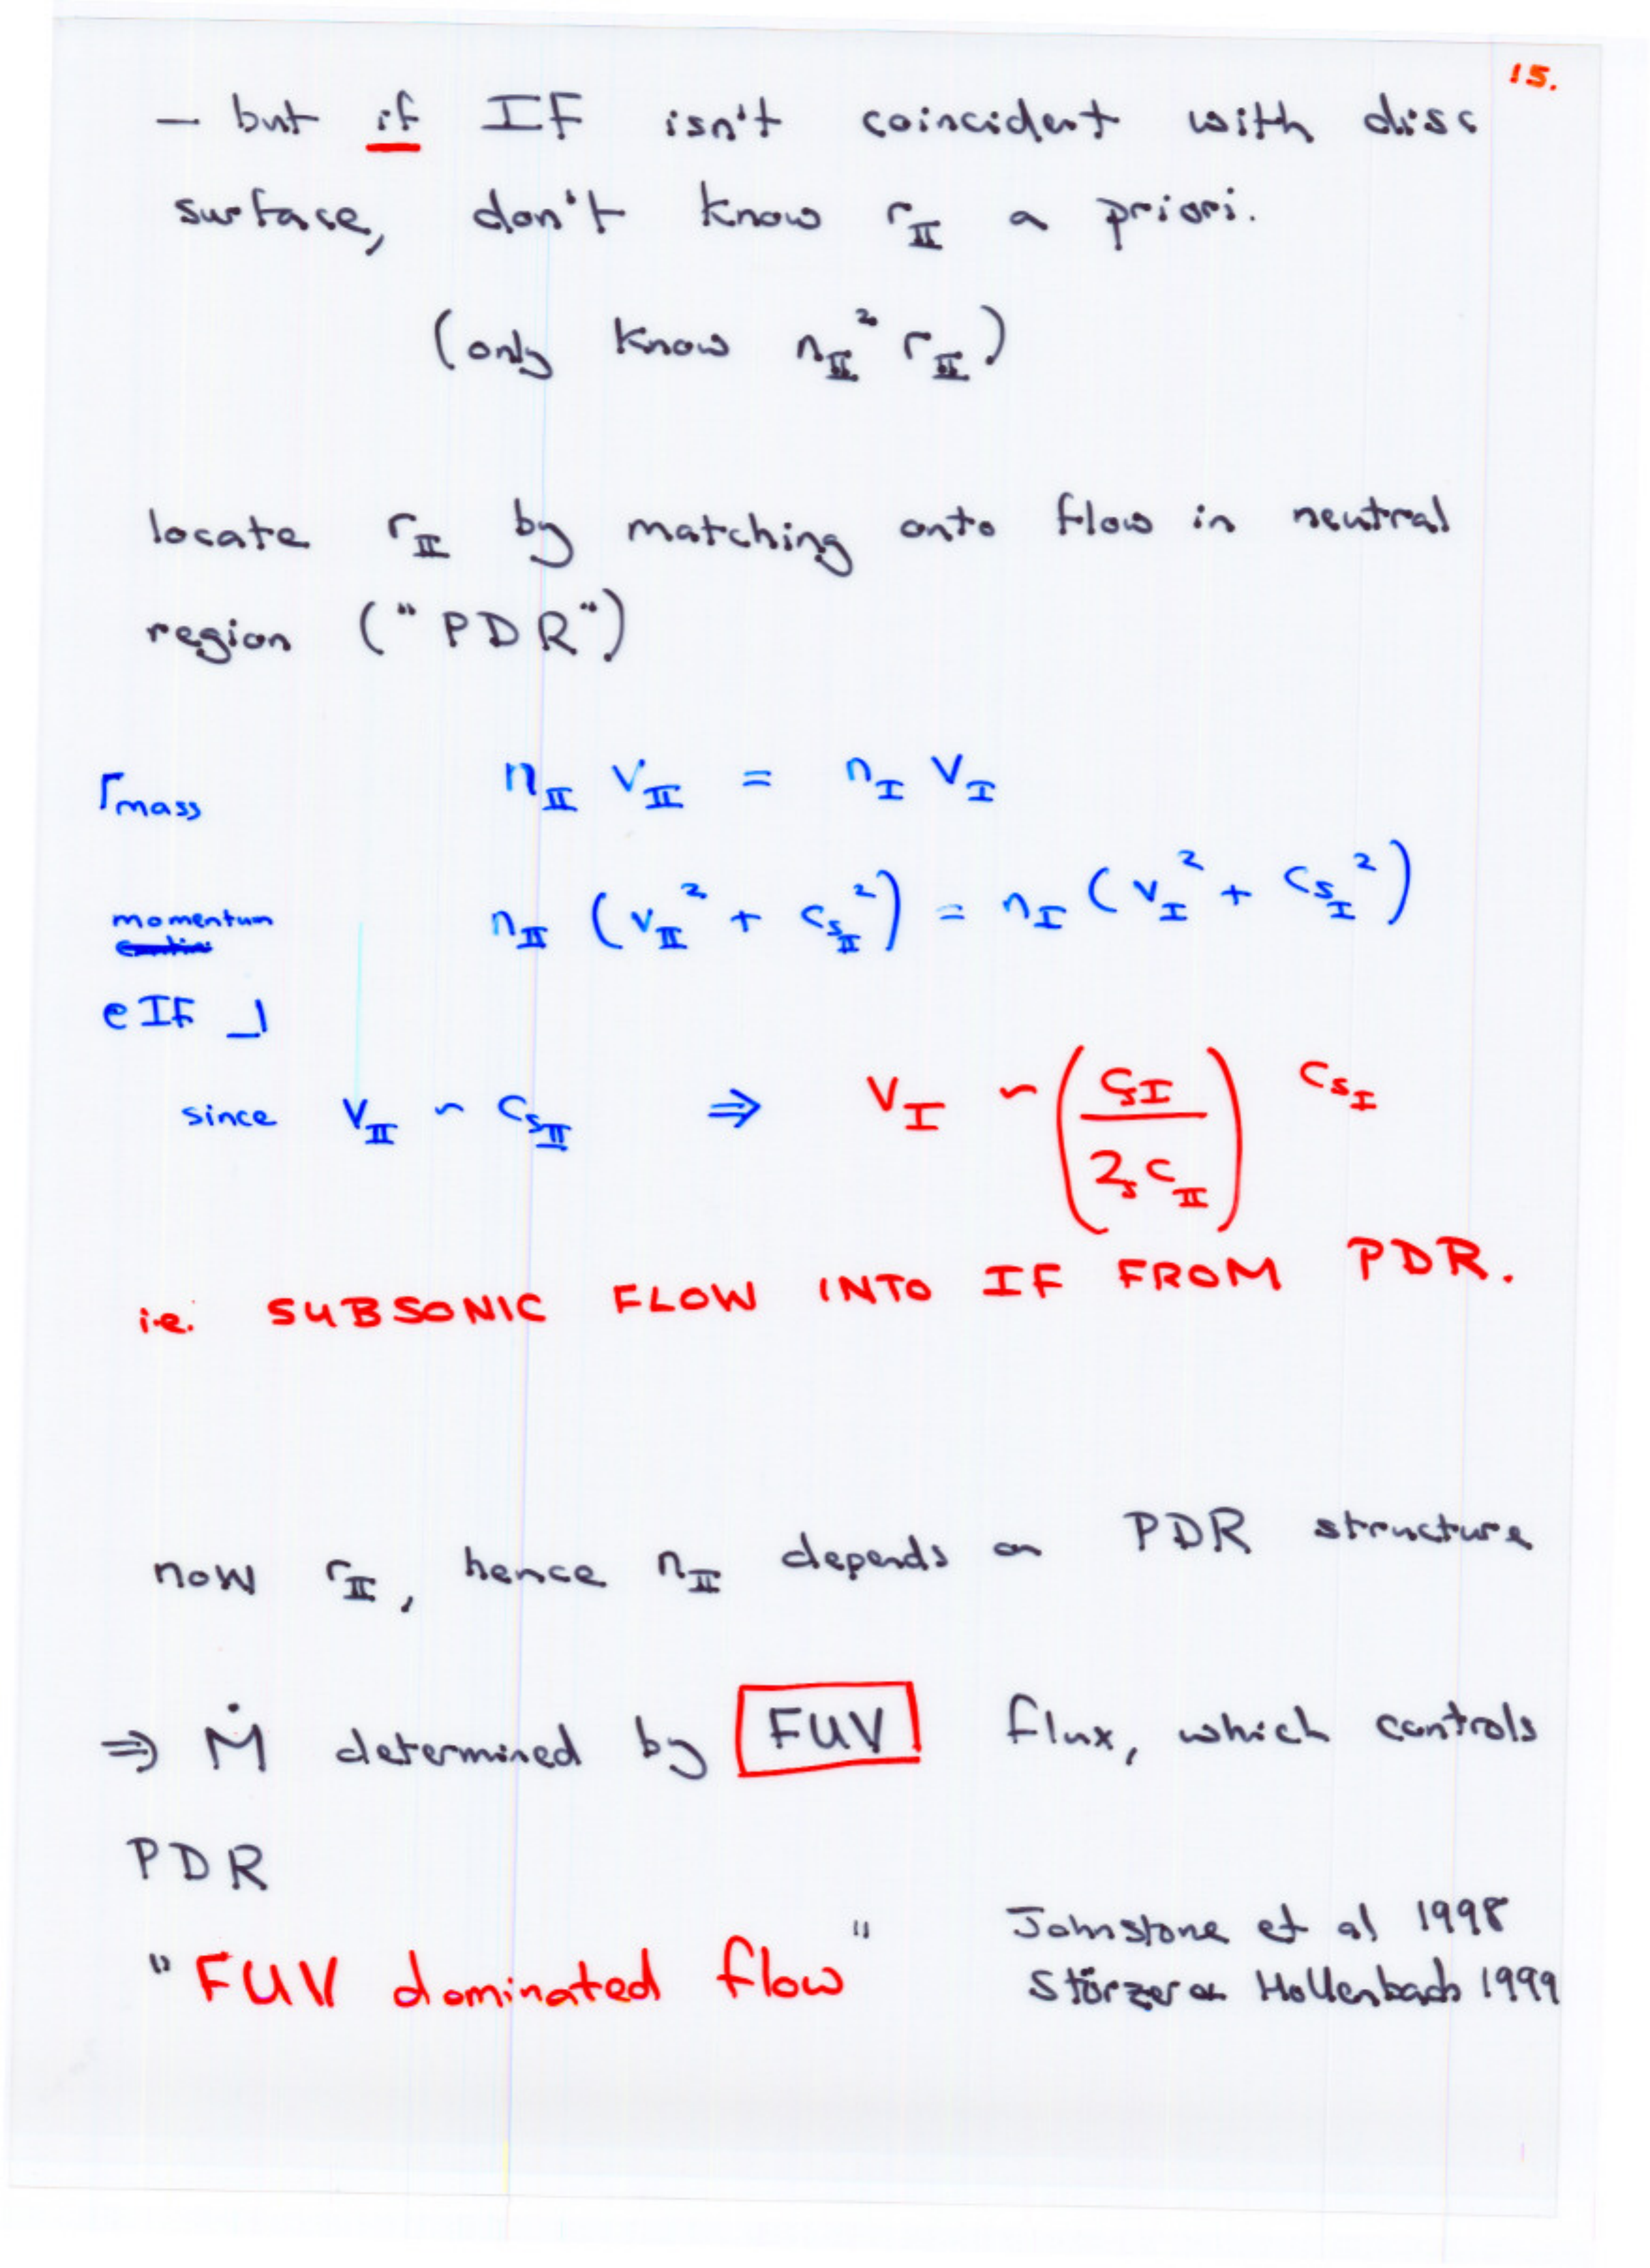 15.
– but if IF isn't coincident with disc
surface, don't know r_II a priori.
(only know n_II² r_II)
locate r_II by matching onto flow in neutral
region ("PDR")
⌈mass n_II v_II = n_I v_I
momentum n_II (v_II² + c_sII²) = n_I (v_I² + c_sI²)
@ IF ⌋
since v_II ~ c_sII ⇒ v_I ~ (c_sI / 2 c_sII) c_sI
i.e. SUBSONIC FLOW INTO IF FROM PDR.
now r_II, hence n_II depends on PDR structure
⇒ Ṁ determined by FUV flux, which controls
PDR
"FUV dominated flow"
Johnstone et al 1998
Störzer & Hollenbach 1999